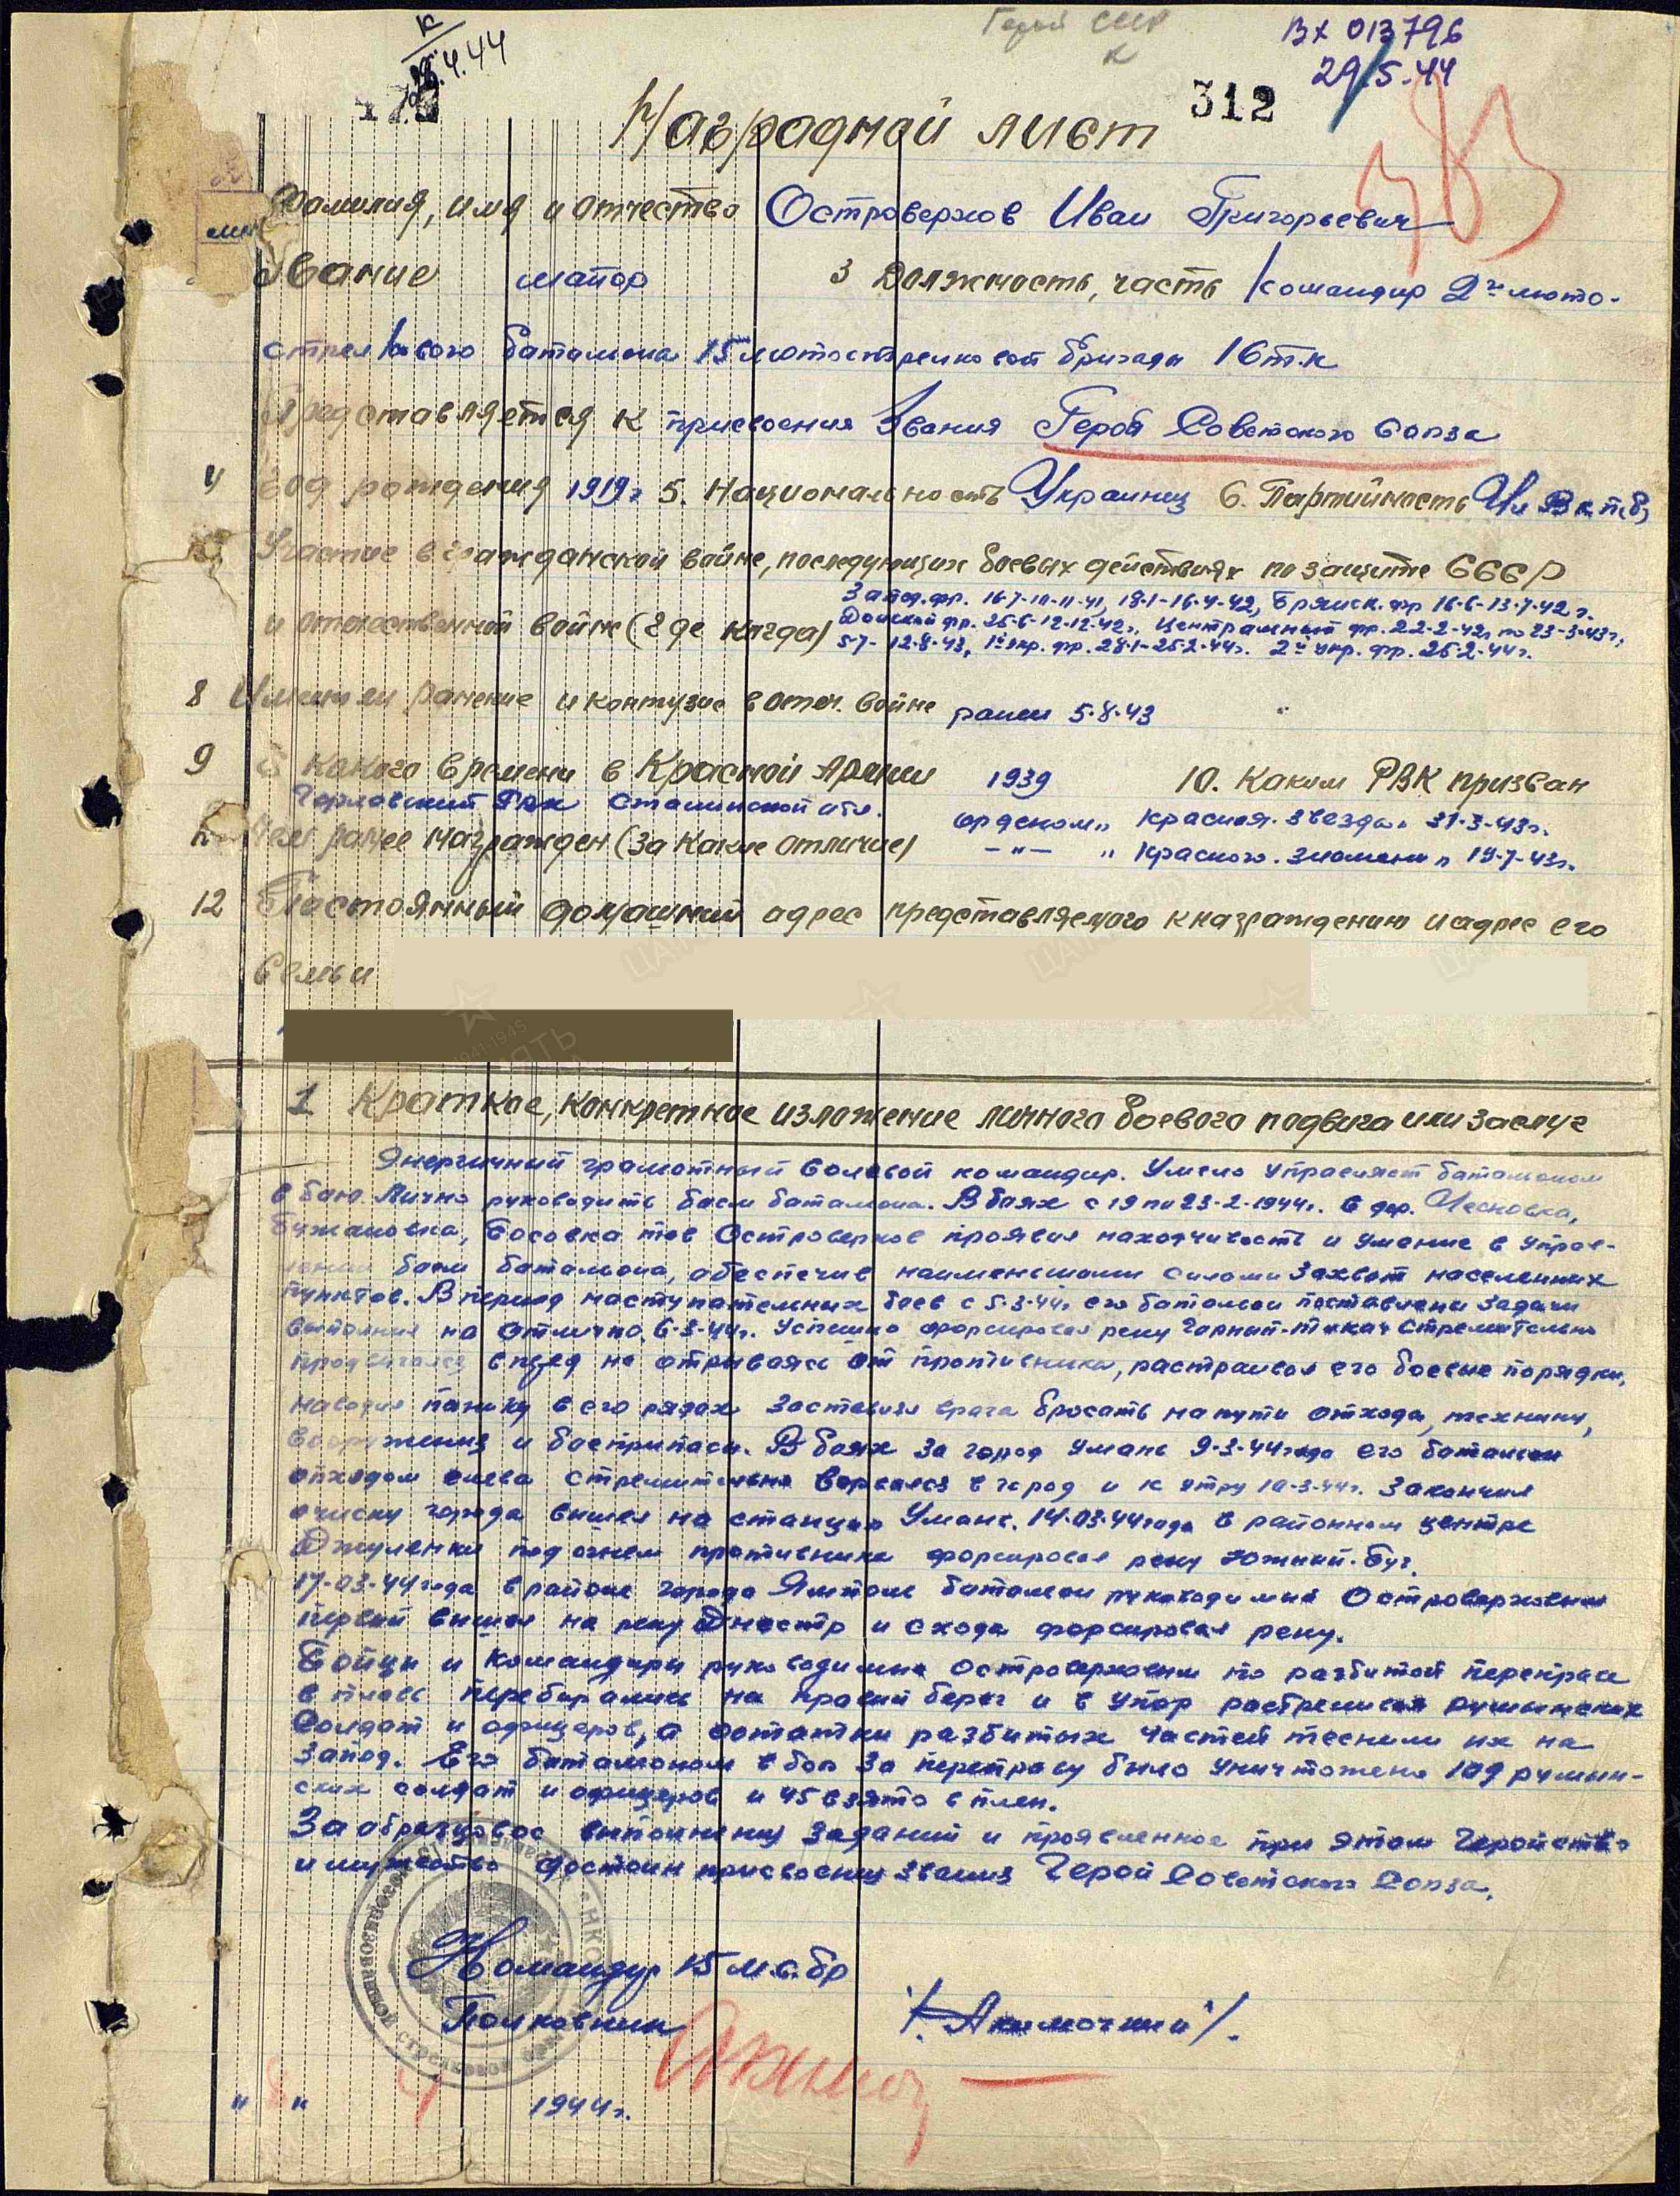 К
4.44
Герой СССР
К
Вх 013796
29.5.44
312
Наградной лист
Фамилия, имя и отчество Островерхов Иван Григорьевич
Звание майор 3 Должность, часть Командир 2го мото-
стрелкового баталиона 15 мотострелковой бригады 16 т.к
Представляется к присвоения Звания Герой Советского Союза
4 Год рождения 1919г 5. Национальность Украинец 6. Партийность Чл ВКП(б)
Участие в гражданской войне, последующих боевых действиях по защите СССР
и отечественной войне (где когда) Запад.фр. 16-7-10-11-41, 18-1-16-4-42, Брянск. фр 16-6-13-7-42 г.
Донской фр. 26-6-12-12-42г., Центральный фр. 22-2-42г по 23-3-43г,
5-7-12-8-43, 1й Укр. фр. 28-1-25-2-44г. 2й Укр. фр. 25-2-44г.
8 Имеет ли ранение и контузие в отеч. войне ранен 5-8-43
9 С какого времени в Красной Армии 1939 10. Каким РВК призван
Горловский РВК Сталинской обл.
Чем ранее награжден (за какие отличие) орденом „ Красная. Звезда „ 31-3-43г.
-„- „ Красного. знамени „ 19-7-43г.
12 Постоянный домашний адрес представляемого к награждению и адрес его
семьи
1 Краткое, конкретное изложение личного боевого подвига или заслуг
Энергичный грамотный волевой командир. Умело управляет баталионом
в бою. Лично руководить боем баталиона. В боях с 19 по 23-2-1944г. в дер. Чесновка,
Бужановка, Босовка тов Островерхов проявил находчивость и умение в управ-
лении боем баталиона, обеспечив наименьшими силами Захват населенных
пунктов. В период наступательных боев с 5-3-44г его баталион поставлены задачи
выполнил на отлично. 6-3-44г. Успешно форсировал реку Горный-Тикич Стремительно
продвигался вперед не отрываясь от противника, растраивал его боевые порядки,
наводил панику в его рядах заставляя врага бросать на пути отхода, технику,
вооружения и боеприпасы. В боях за город Умань 9-3-44года его баталион
обходом слева стремительно ворвался в город и к утру 10-3-44г. Закончил
очиску города вышел на станцию Умань. 14-03-44года в районном центре
Джулинки под огнем противника форсировал реку Южный-Буг.
17-03-44года в районе города Ямполь баталион руководимый Островерховым
первый вышел на реку Днестр и схода форсировал реку.
Бойцы и командиры руководимые Островерховым по разбитой переправе
в плавь перебирались на правый берег и в упор растреливая румынских
солдат и офицеров, а остатки разбитых частей теснили их на
Запад. Его баталионом в бою за переправу было уничтожено 109 румын-
ских солдат и офицеров и 45 взято в плен.
За образцовое выполнения заданий и проявленное при этом геройство
и мужество достоин присвоения звания Герой Советского Союза.
Командир 15 м.с.бр
Полковник /Акимочкин/.
" " 1944г.